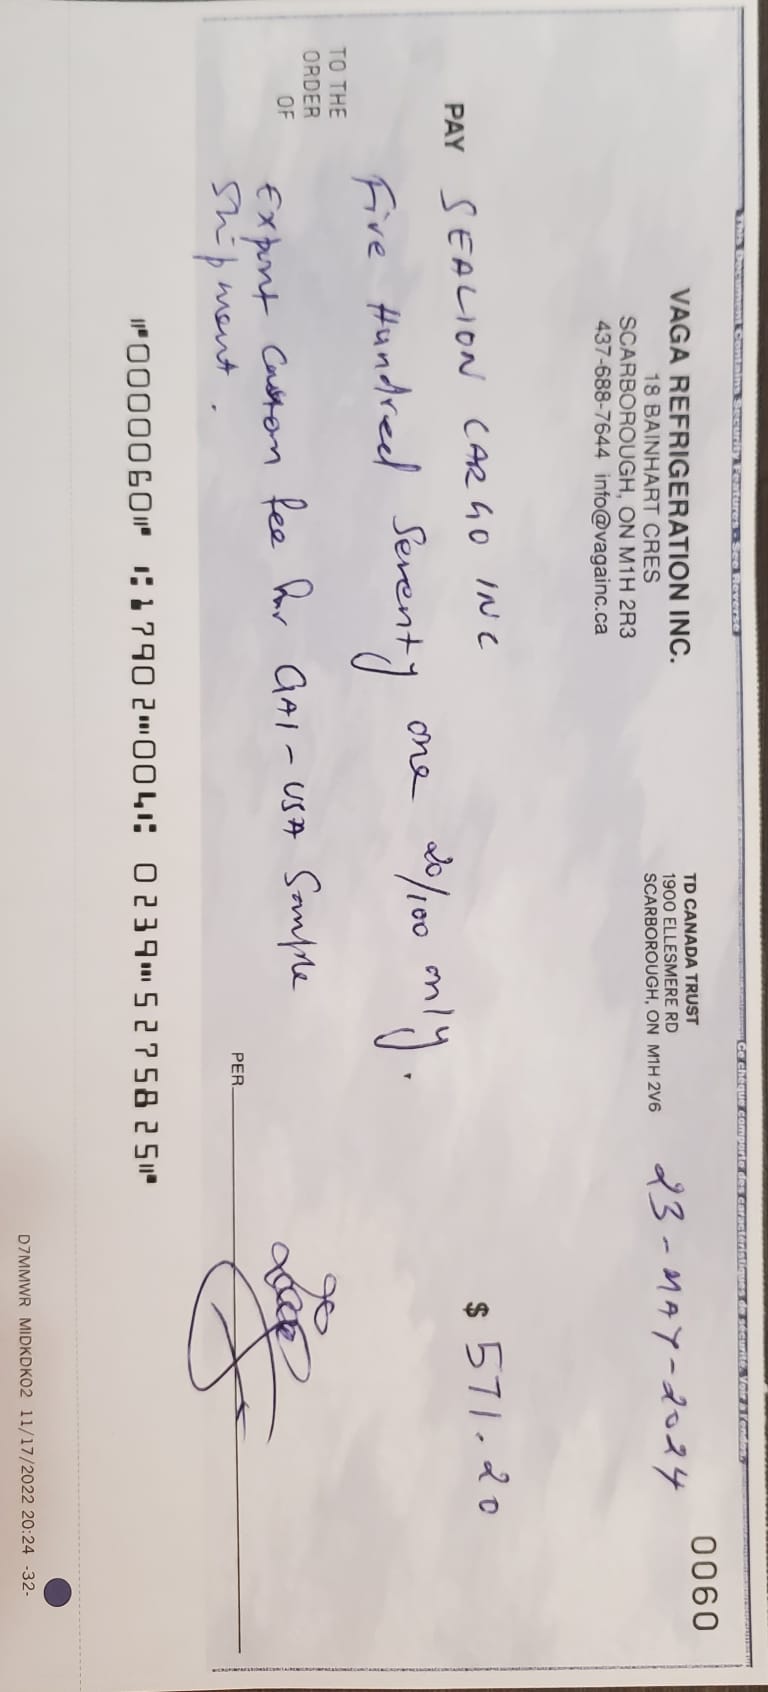 This Document Contains Security Features - See Reverse
Ce chèque comporte des caractéristiques de sécurité. Voir à l'endos.
0060
VAGA REFRIGERATION INC.
18 BAINHART CRES
SCARBOROUGH, ON M1H 2R3
437-688-7644 info@vagainc.ca
TD CANADA TRUST
1900 ELLESMERE RD
SCARBOROUGH, ON M1H 2V6
23-MAY-2024
PAY SEALION CARGO INC
$ 571.20
Five Hundred Seventy one 20/100 only.
TO THE
ORDER
OF
Export Custom fee for GAI-USA Sample
Shipment.
PER
⑈000060⑈ ⑆17902⑉004⑆ 0239⑉5275825⑈
D7MMWR MIDKDK02 11/17/2022 20:24 -32-